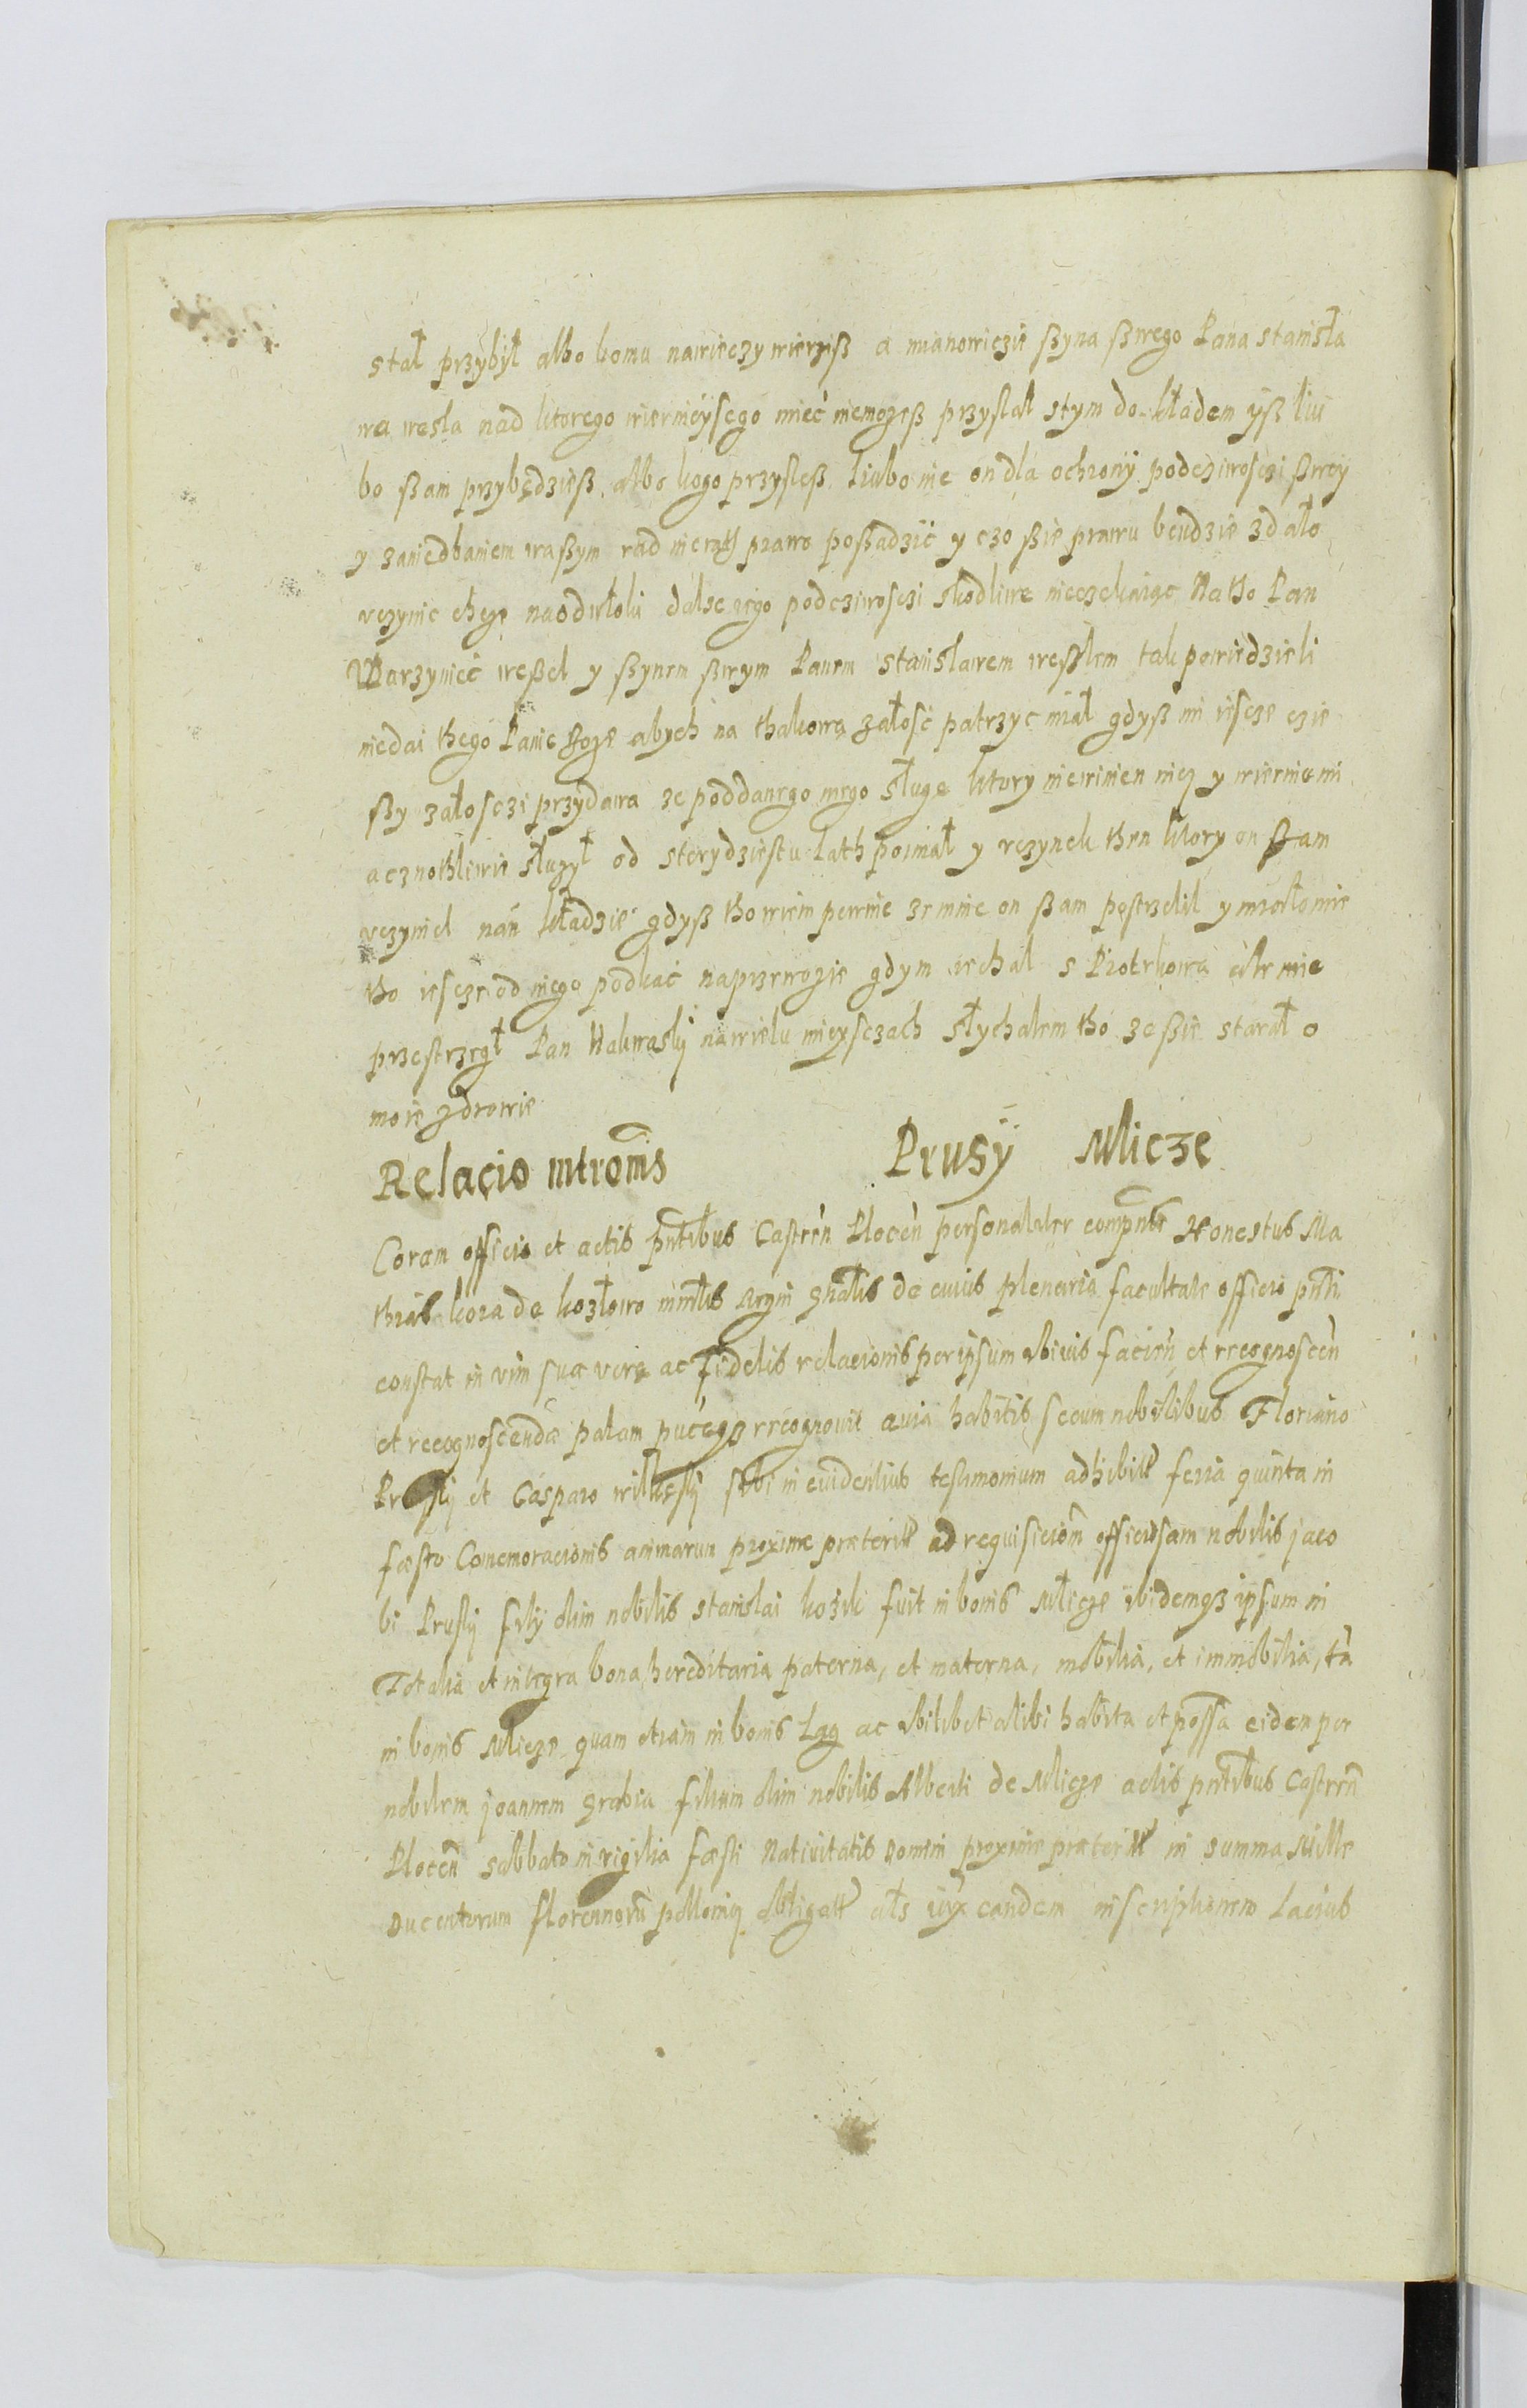 stał przybył albo komu nawieczy wierzisz a mianowiczie szyna szwego Pana stanisła
wa wesla nad ktorego wierniéysego mieć niemozesz przysłał stym do-kładem ysz liu
bo szam przybędziesz albo kogo przyslesz liubo nie on dla ochrony podcziwosczi szwey
y zaniedbaniem waszym rad nierad prawo poszadzić y czo szie prawu bendzie zdało
vczynic chcze naodwłoki dalse iego podcziwosczi skodliwe nieczekaiąc Natho Pan
Warzyniec weszel y szynem szwym Panem stanisławem weszlem tak powiedzieli
niedai thego Panie Boze abych na thakową załość patrzyc miał gdysz mi iescze czie
szy załosczi przydawa ze poddanego mego sługe ktory niewinien nicz y wiernie mi
a cznothliwie słuzył od sterydziestu lath poimał y vczynek then ktory on szam
vczynieł nań kładzie gdysz tho wiem pewnie ze mnie on szam postrzelił y miało mie
tho iescze od niego podkać naprzewozie gdym iechał s Piotrkowa ale mie
przestrzegł Pan Nakwaskij nawielu mieysczach słychałem tho ze szie starał o
moie zdrowie
Relacio intromis Prusy Mlicze
Coram officio et actis pntibus Castren Plocen personaliter compns Honestus Ma
thias koza de kozłowo mintlis Regni gnalis de cuius plenaria facultate officio pnti
constat in vim sua vera ac fidelis relacionis per ipsum vbiuis facien et recognoscen
et recognoscenda palam puceqz recognouit quia habitis secum nobilibus Floriano
Pruskij et Casparo wilkeskij sibi in euidentius testimonium adhibitt feria quinta in
fæsto Comemoracionis animarum proxime præteritt ad requisiciom officiosam nobilis jaco
bi Pruskij filÿ olim nobilis stanislai kozik fuit in bonis Mlicze ibidemqz ipsum in
Totalia et integra bona hereditaria paterna, et materna, mobilia, et immobilia, ta
in bonis Mlicze quam etiam in bonis Lag ac vbilibet alibi habita et possa eidem per
nobilem joannem grabia filium olim nobilis Alberti de Mlicze actis pntibus Castren
Plocen sabbato in vigilia fæsti Natiuitatis Domini proxime præteritt in summa Mille
Ducentorum florenorum polloniq obligatt als iux eandem inscriptionem Lacius